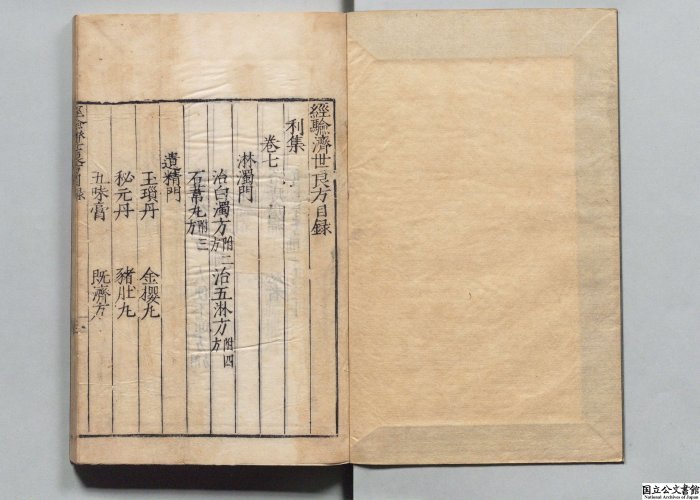 經驗濟世良方目録
利集
卷七
淋濁門
治白濁方附二方 治五淋方附四方
石葦丸附三方
遺精門
玉瑣丹 金櫻丸
秘元丹 猪肚丸
五味膏 既濟方
國立公文書館
National Archives of Japan